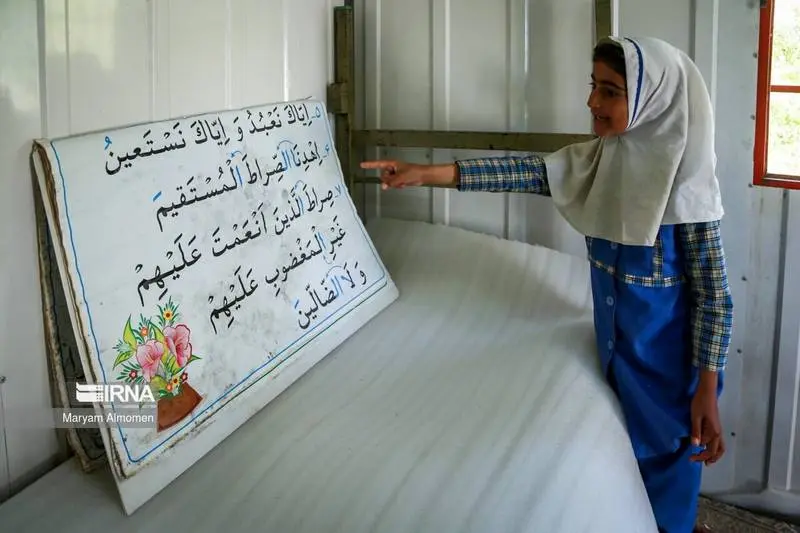 ۵ـ اِیّاکَ نَعْبُدُ وَ اِیّاکَ نَسْتَعینُ
۶ـ اِهْدِنَا الصِّراطَ الْمُسْتَقیمَ
۷ـ صِراطَ الَّذینَ اَنْعَمْتَ عَلَیْهِمْ
غَیْرِ الْمَغْضوبِ عَلَیْهِمْ
وَ لَا الضّالّینَ
IRNA
Maryam Almomen